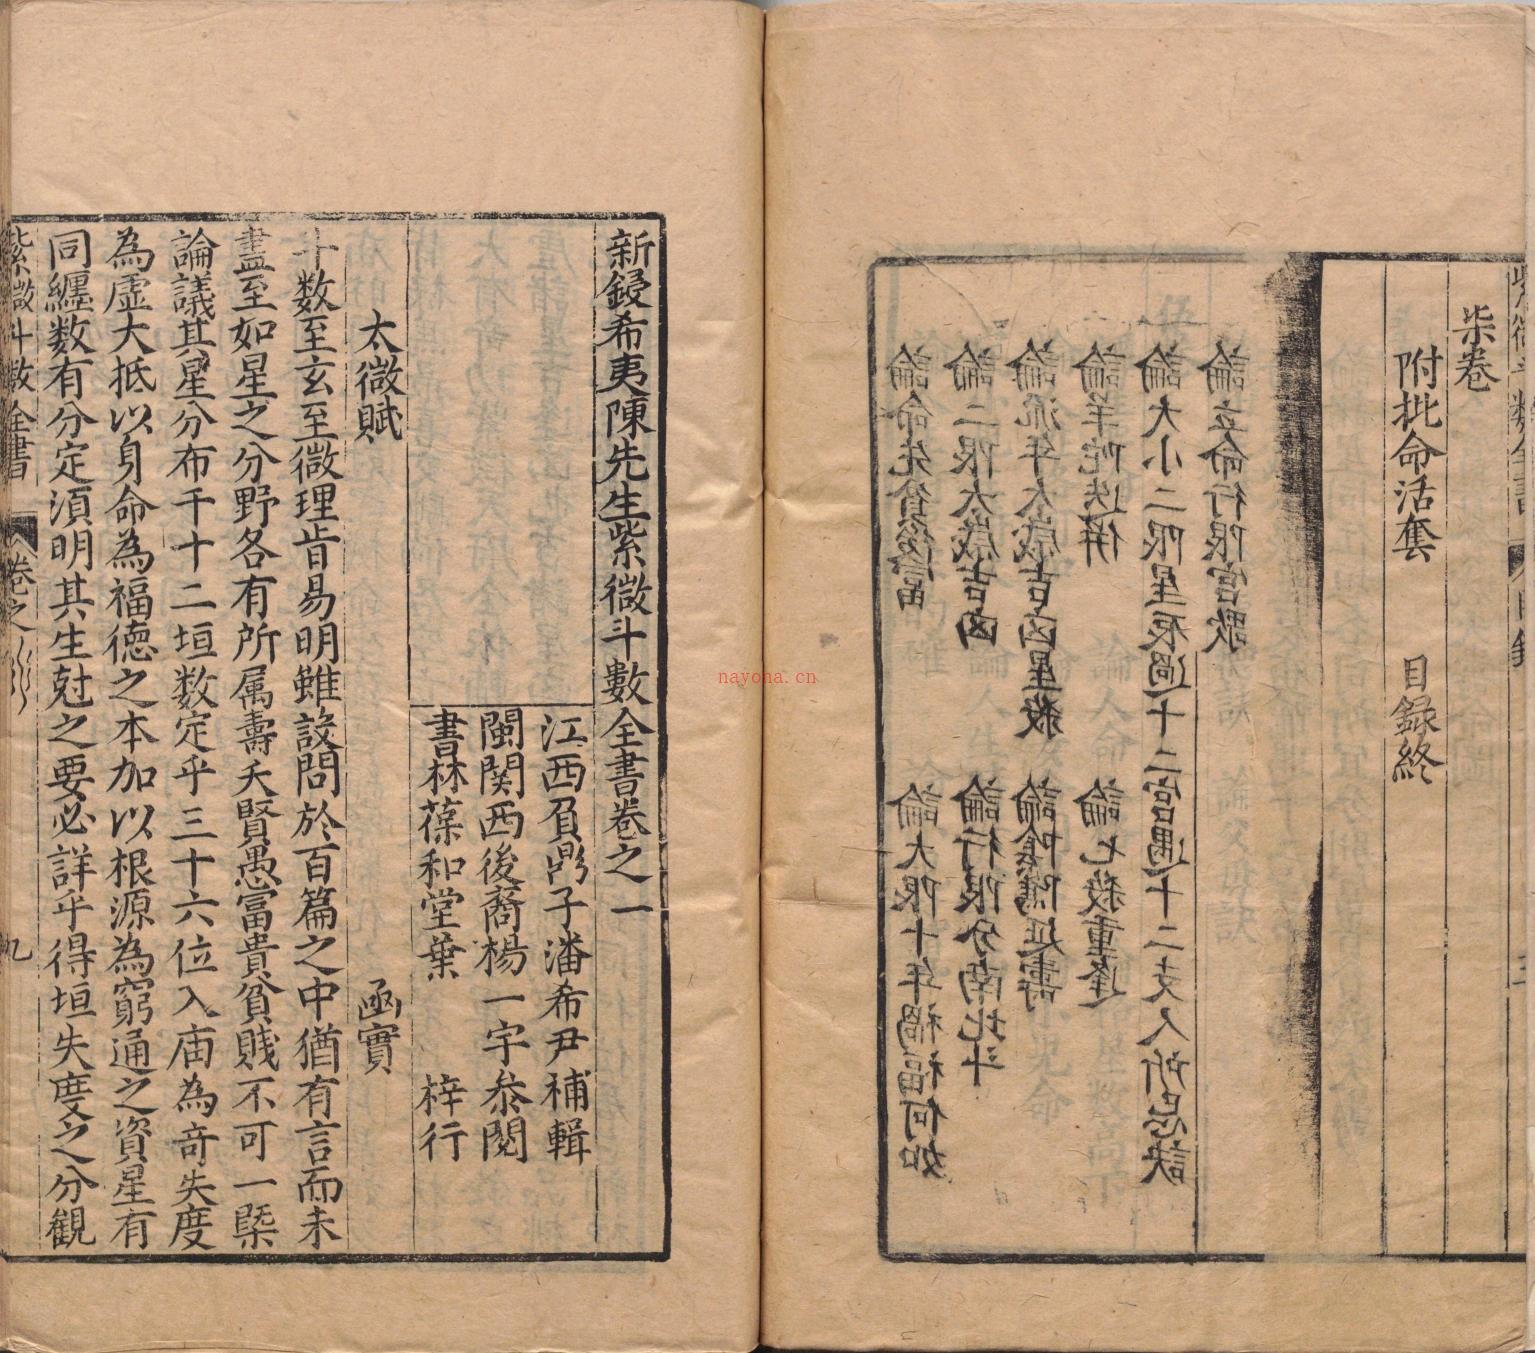 柒卷
附批命活套 目錄終
論立命行限宮歌
論大小二限星辰過十二宮遇十二支人所忌訣
論羊陀迭併 論七殺重逢
論流年太歲吉凶星殺 論陰隲延壽
論二限太歲吉凶 論行限分南北斗
論命先貧後富 論大限十年禍福何如
新鋟希夷陳先生紫微斗數全書卷之一
江西負鼎子潘希尹補輯
閩関西後裔楊一宇叅閱
書林葆和堂葉 梓行
太微賦 函實
斗数至玄至微理旨易明雖設問於百篇之中猶有言而未
盡至如星之分野各有所属壽夭賢愚富貴貧賎不可一槩
論議其星分布千十二垣数定乎三十六位入庙為奇失度
為虛大抵以身命為福德之本加以根源為窮通之資星有
同纏数有分定須明其生尅之要必詳乎得垣失度之分観
紫微斗數全書 卷之 九
nayona.cn